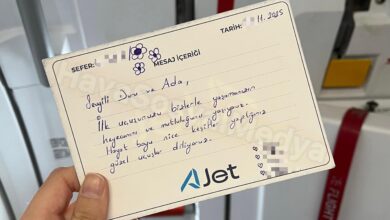 SEFER: L
TARİH: 11.2025
MESAJ İÇERİĞİ
Sevgili Duru ve Ada,
İlk uçuşunuzu bizlerle yaşamanızın
heyecanını ve mutluluğunu yaşıyoruz.
Hayat boyu nice keşifler yaptığınız
güzel uçuşlar diliyoruz.
AJet
FLIGHT